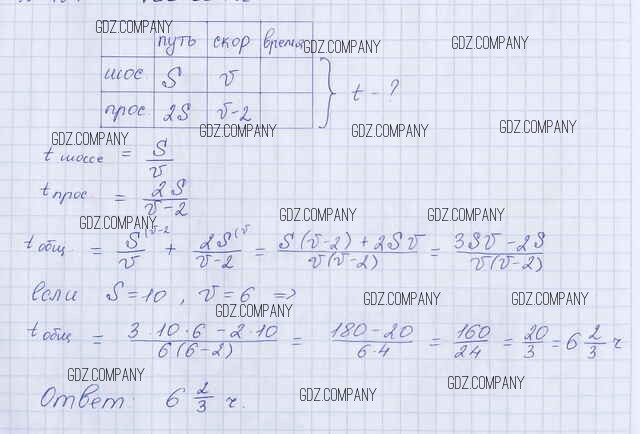 GDZ.COMPANY
путь скор время GDZ.COMPANY GDZ.COMPANY
шос. S v
t - ?
прос. 2S v-2
GDZ.COMPANY GDZ.COMPANY GDZ.COMPANY GDZ.COMPANY
t шоссе = S/v
t прос. = 2S/(v-2)
GDZ.COMPANY GDZ.COMPANY GDZ.COMPANY
t общ. = S^(v-2/v + 2S^(v/(v-2) = (S(v-2)+2Sv)/(v(v-2)) = (3Sv-2S)/(v(v-2))
если S=10, v=6 =>
GDZ.COMPANY GDZ.COMPANY GDZ.COMPANY
t общ = (3·10·6-2·10)/(6(6-2)) = (180-20)/(6·4) = 160/24 = 20/3 = 6 2/3 ч
GDZ.COMPANY GDZ.COMPANY GDZ.COMPANY
Ответ: 6 2/3 ч.